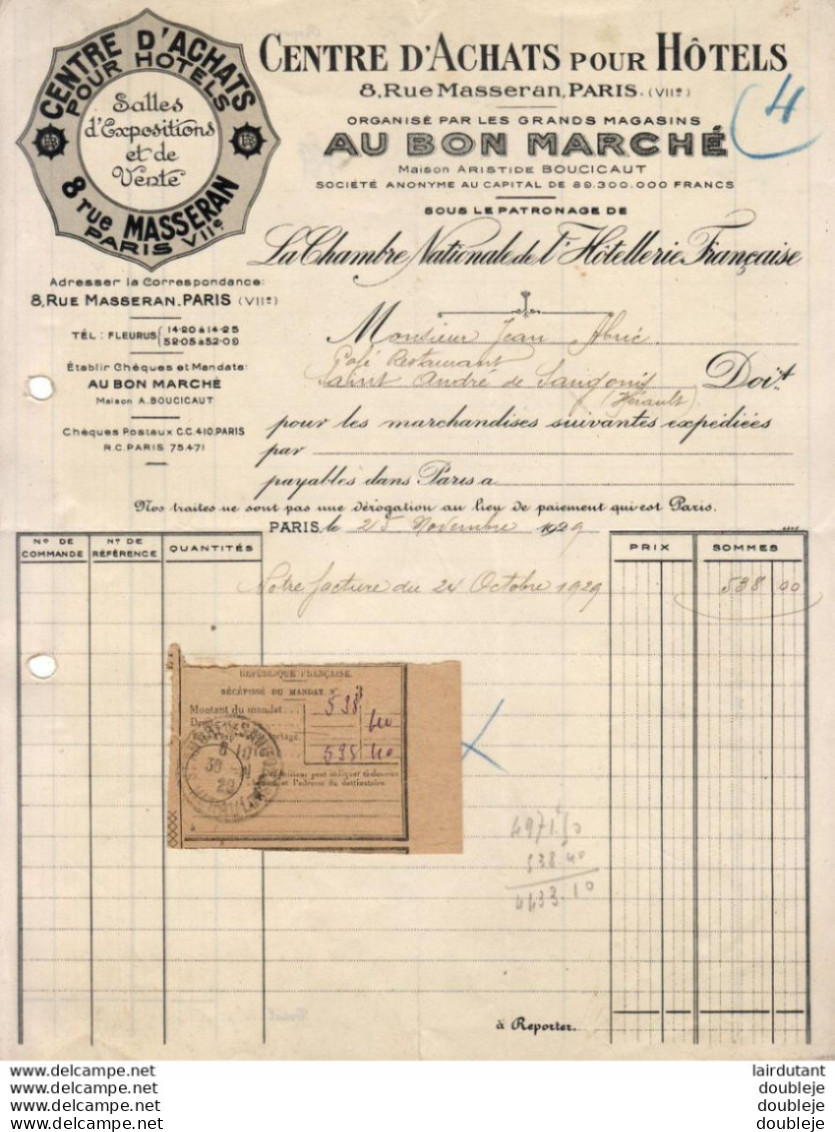 CENTRE D'ACHATS
POUR HOTELS
Salles
d'Expositions
et de
Vente
8 rue MASSERAN
PARIS VIIe
CENTRE D'ACHATS POUR HÔTELS
8, Rue Masseran, PARIS. (VIIe)
4
ORGANISÉ PAR LES GRANDS MAGASINS
AU BON MARCHÉ
Maison ARISTIDE BOUCICAUT
SOCIÉTÉ ANONYME AU CAPITAL DE 89.300.000 FRANCS
SOUS LE PATRONAGE DE
La Chambre Nationale de l'Hôtellerie Française
Adresser la Correspondance:
8, RUE MASSERAN. PARIS (VIIe)
TÉL : FLEURUS 14-20 à 14-25
52-05 à 52-09
Établir Chèques et Mandats:
AU BON MARCHÉ
Maison A. BOUCICAUT
Chèques Postaux C.C. 410. PARIS
R.C. PARIS 75471
Monsieur Jean Abric
Café Restaurant
Saint André de Sangonis Doit
(Hérault)
pour les marchandises suivantes expédiées
par
payables dans Paris a
Nos traites ne sont pas une dérogation au lieu de paiement qui est Paris.
PARIS, le 25 Novembre 1929
No DE COMMANDE No DE RÉFÉRENCE QUANTITÉS PRIX SOMMES
Notre facture du 24 Octobre 1929 538 00
RÉPUBLIQUE FRANÇAISE.
RÉCÉPISSÉ DU MANDAT No
Montant du mandat... 538
40
538 40
et l'adresse du destinataire.
30
29
à
4971.50
538.40
4433.10
à Reporter.
lairdutant
doubleje
doubleje
doubleje
www.delcampe.net